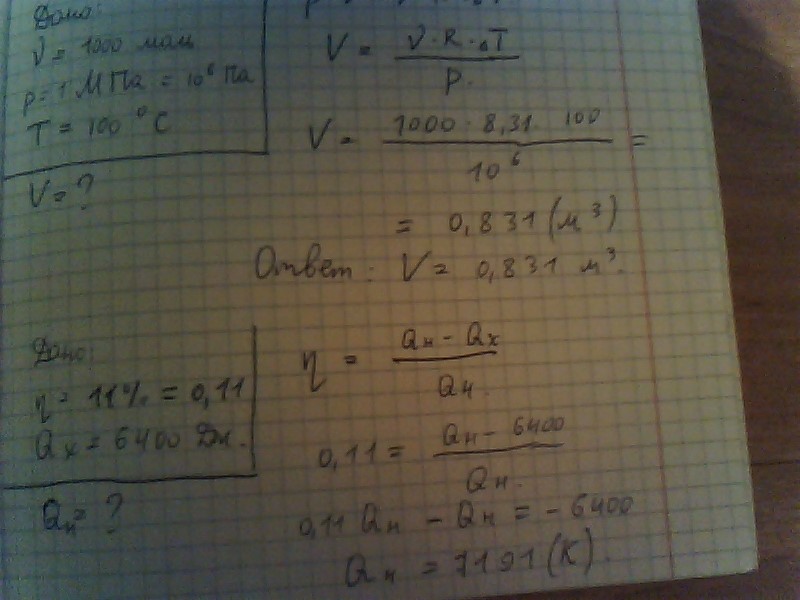 Дано:
ν = 1000 моль
p = 1 МПа = 10⁶ Па
T = 100 °C
V = ?
V = ν · R · ΔT / p.
V = 1000 · 8,31 · 100 / 10⁶ =
= 0,831 (м³)
Ответ: V = 0,831 м³.
Дано:
η = 11% = 0,11
Qх = 6400 Дж.
Qн = ?
η = Qн - Qх / Qн.
0,11 = Qн - 6400 / Qн.
0,11 Qн - Qн = - 6400
Qн = 7191 (К).